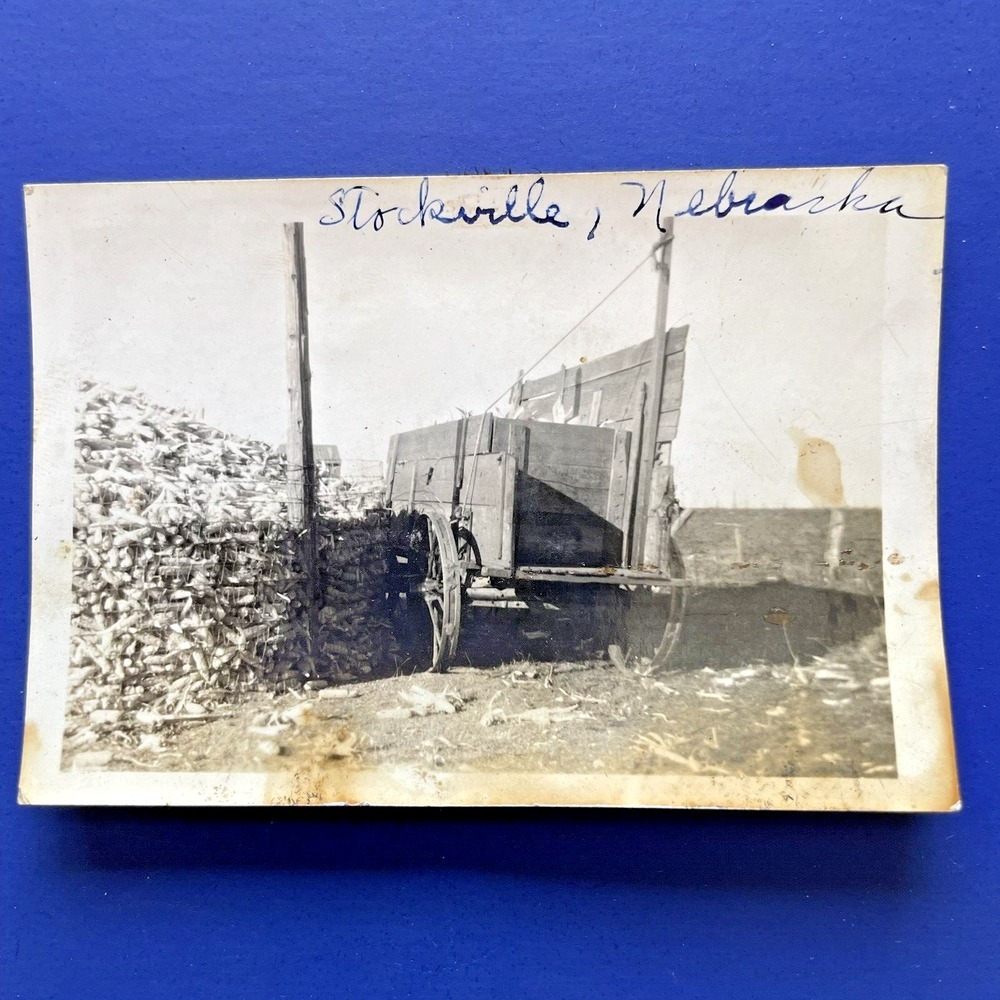 Stockville, Nebraska